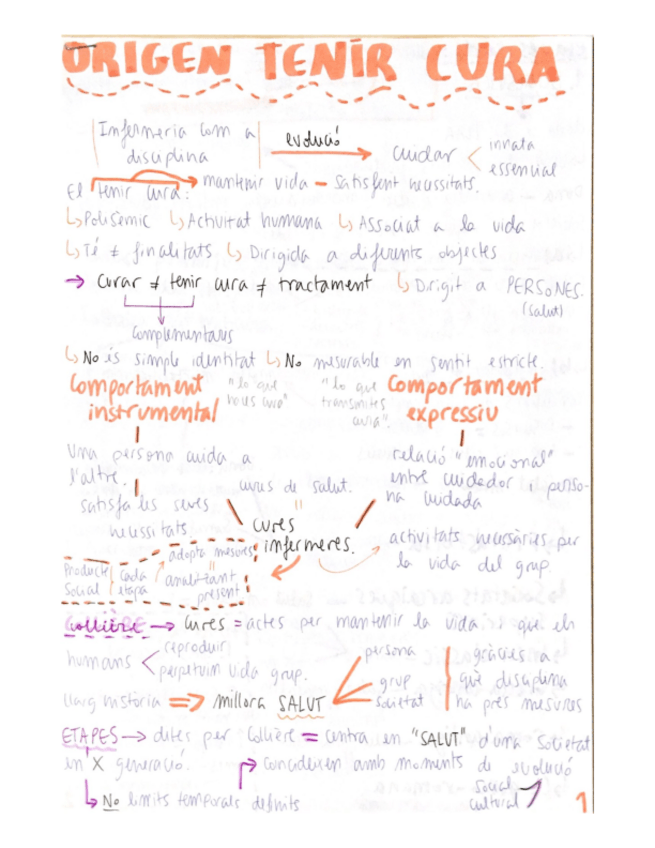 ORIGEN TENIR CURA
Infermeria com a disciplina evolució cuidar innata essencial
El tenir cura: mantenir vida - satisfent necessitats.
Polisèmic Activitat humana Associat a la vida
Té ≠ finalitats Dirigida a diferents objectes
→ Curar ≠ tenir cura ≠ tractament Dirigit a PERSONES. (salut)
complementaris
No és simple identitat No mesurable en sentit estricte.
Comportament instrumental "lo que "lo que transmites cura". Comportament expressiu
Una persona cuida a l'altre.
satisfà les seves necessitats.
cures de salut.
relació "emocional" entre cuidador i persona cuidada
=
cures infermeres.
activitats necessàries per la vida del grup.
Producte social cada etapa adopta mesures = present
Collière → Cures = actes per mantenir la vida que els
humans reproduir perpetuin vida grup.
persona grup societat
gràcies a què disciplina ha pres mesures
llarg història ⇒ millora SALUT
ETAPES → dites per Collière = centra en "SALUT" d'una societat
en X generació. coincideixen amb moments de evolució
social cultural
No límits temporals definits
1